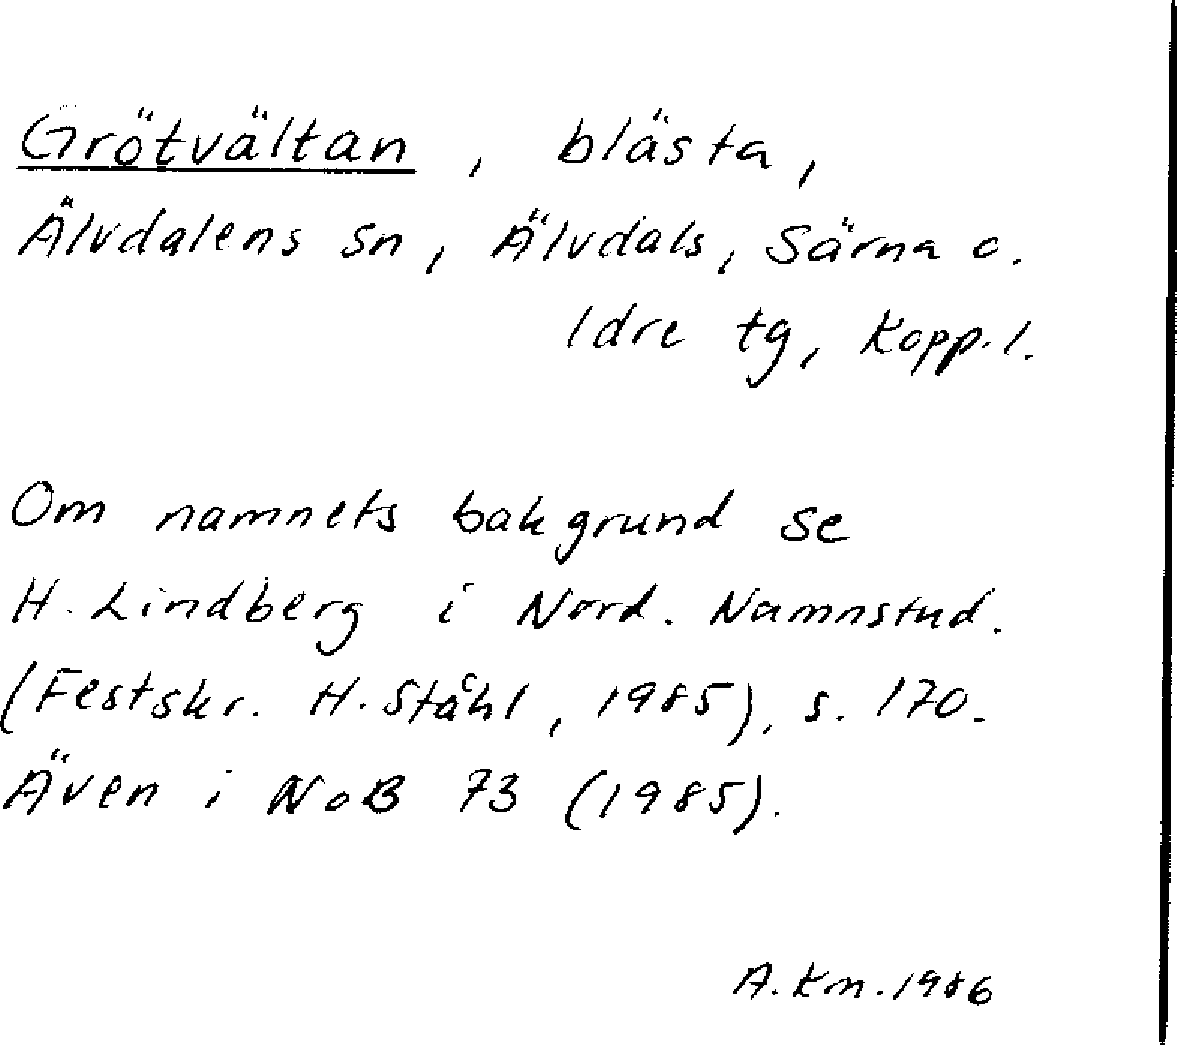 Grötvältan, blästa,
Älvdalens sn, Älvdals, Särna o.
Idre tg, Kopp. l.
Om namnets bakgrund se
H. Lindberg i Nord. Namnstud.
(Festskr. H. Ståhl, 1985), s. 170.
Även i NoB 73 (1985).
A. Km. 1986